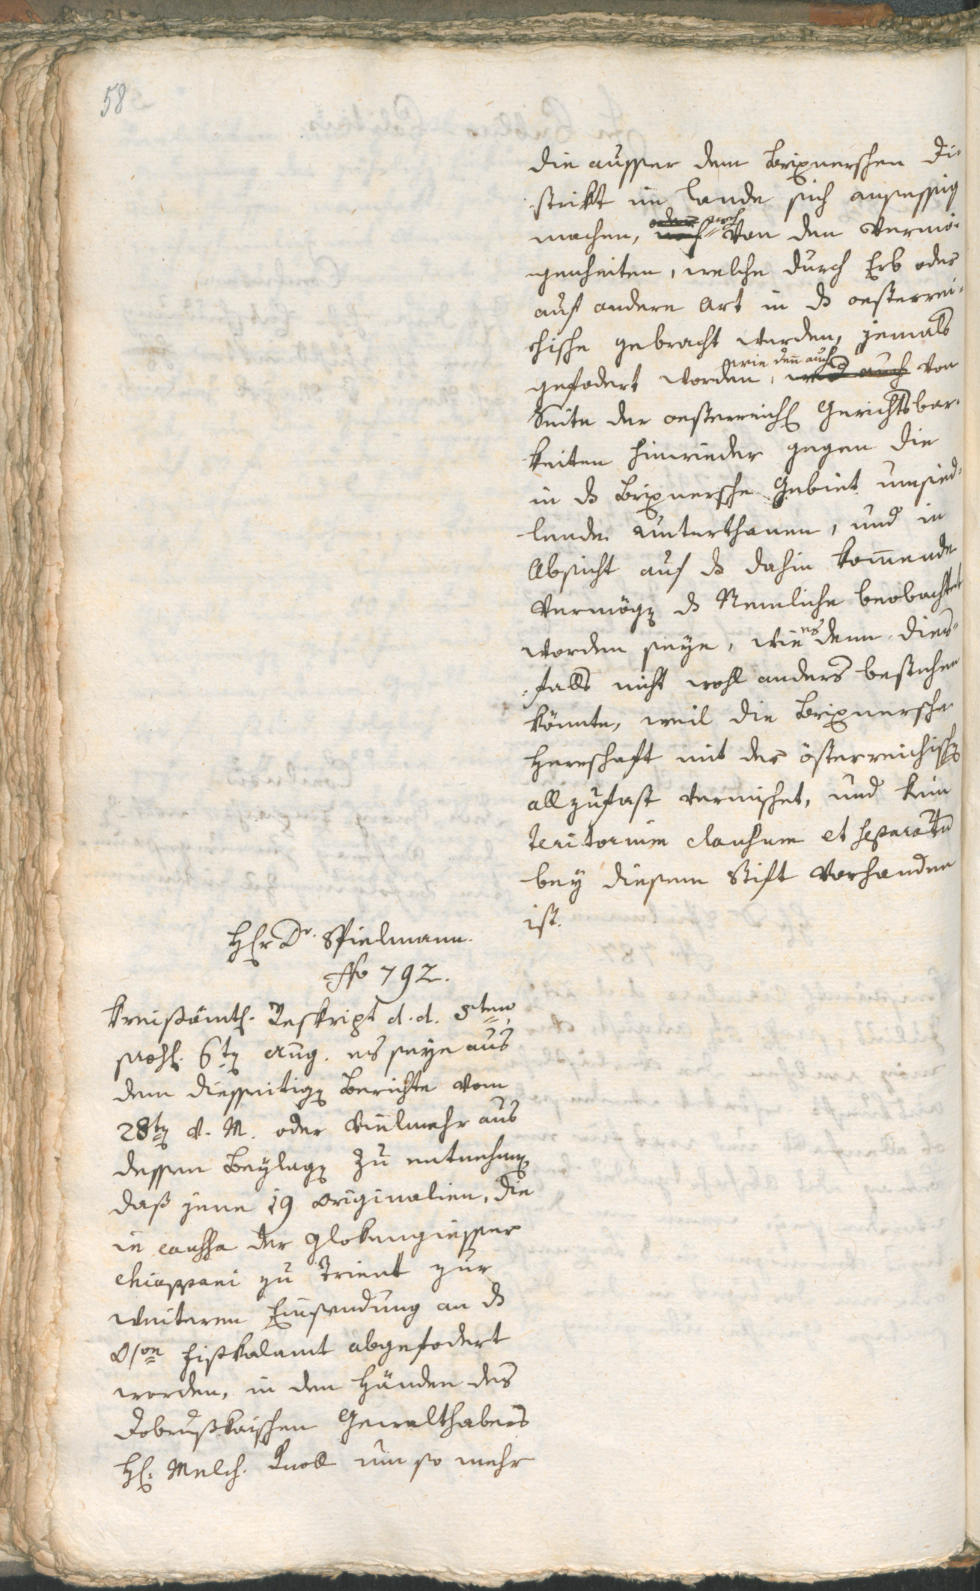 58
die ausser dem Brixnerschen Di-
strikt im Lande sich ansessig
machen, oder noch von den Vermö-
genheiten, welche durch Erb oder
auf andere Art in ds oesterrei-
chische gebracht werden, jemals
gefodert worden, wie deñ auch und auch von
Seite der oesterreich. Gerichtsbar-
keiten hinwieder gegen die
in ds Brixnersche Gebiet umsied-
lende Unterthanen, und in
Absicht auf ds dahin kom̃ende
Vermögen ds Nemliche beobachtet
worden seye, wie es denn dies-
falls nicht wohl anders bestehen
könnte, weil die Brixnersche
Herrschaft mit der österreichischen
allzufast vermischet, und kein
teritorium clausum et separatum
bey diesem Stift vorhanden
ist.
Hr Dr. Spielmann.
No 792.
Kreisämtl. Reskript d. d. 5ten
praes. 6ten Aug. es seye aus
dem diesseitigen Berichte vom
28ten v. M. oder vielmehr aus
dessen Beylagen zu entnehmen
daß jene 19 Originalien, die
in caussa der Glokengiesser
Chiappani zu Trient zur
weiteren Einsendung an ds
Fiskalamt abgefodert
worden, in den Händen des
Dobruskaischen Gewalthabers
H. Melch. Knoll um so mehr